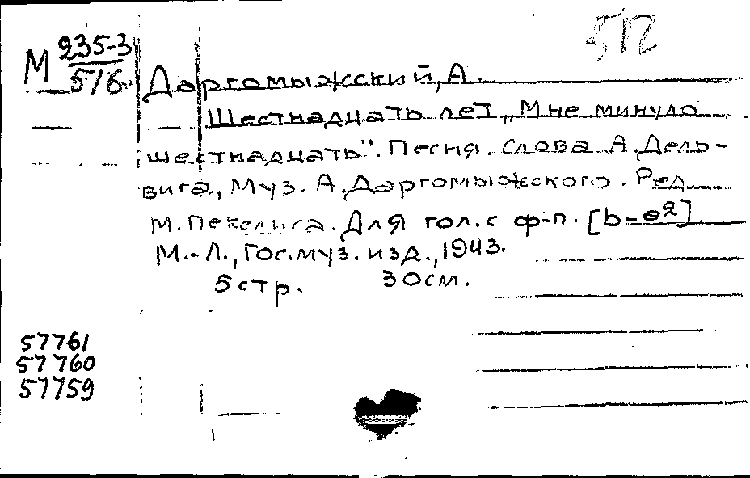 512
М 235-3
516
Даргомыжский, А.
Шестнадцать лет „Мне минуло
шестнадцать". Песня. Слова А. Дель-
вига, Муз. А. Даргомыжского. Ред.
М. Пекелиса. Для гол. с ф-п. [b-e²]
М.-Л., Гос. муз. изд., 1943.
5 стр. 30 см.
57761
57760
57759